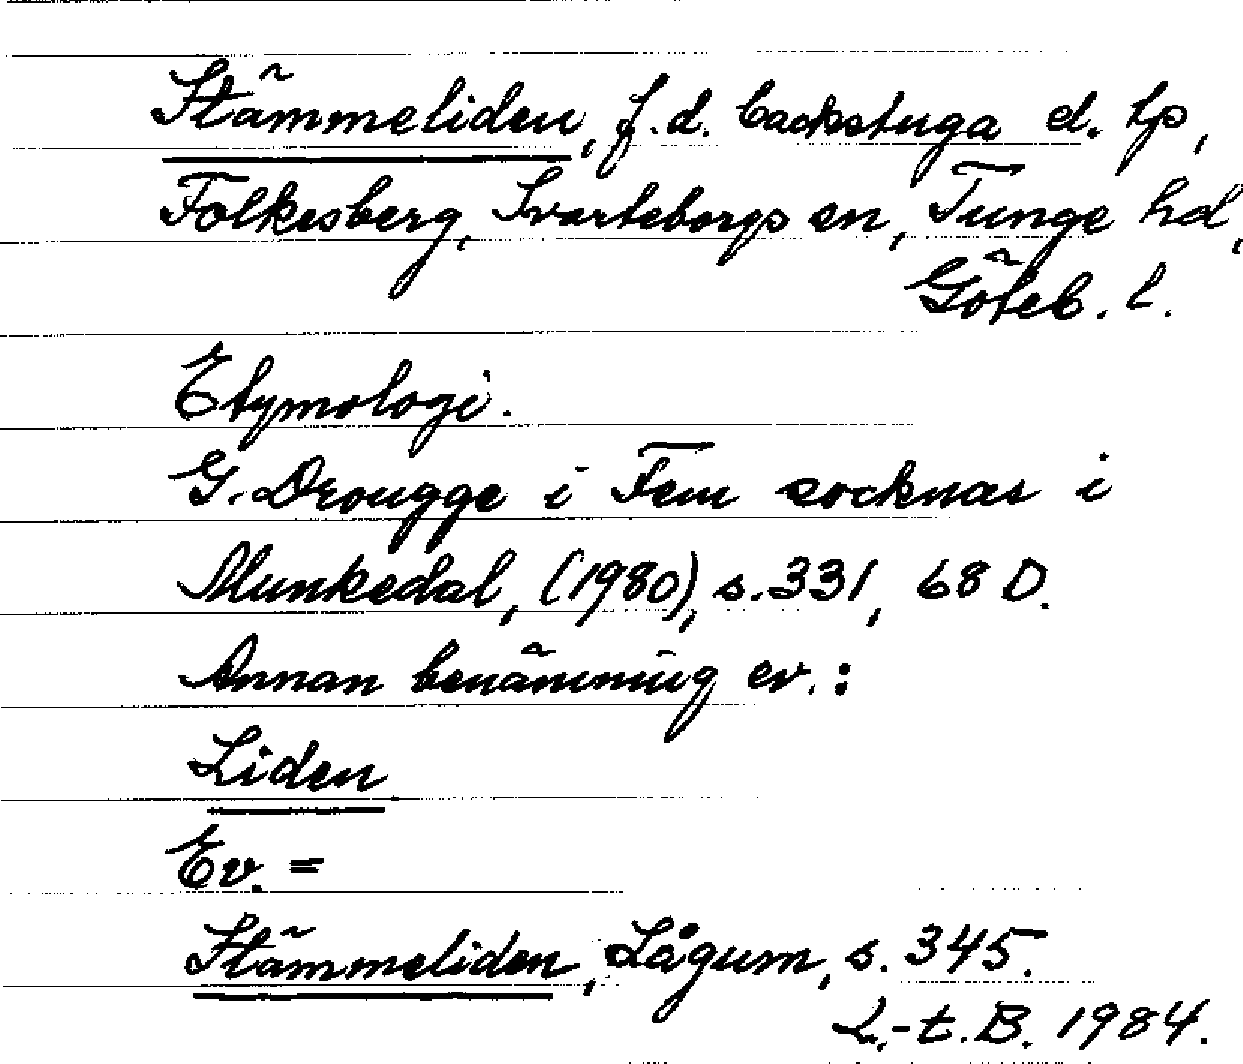 Stämmeliden, f.d. backstuga el. lp,
Folkesberg, Svarteborgs sn, Tunge hd,
Göteb. l.
Etymologi.
G. Drougge i Fem socknar i
Munkedal, (1980), s. 331, 68 D.
Annan benämning ev.:
Liden
Ev. =
Stämmeliden, Lågum, s. 345.
L.-t. B. 1984.